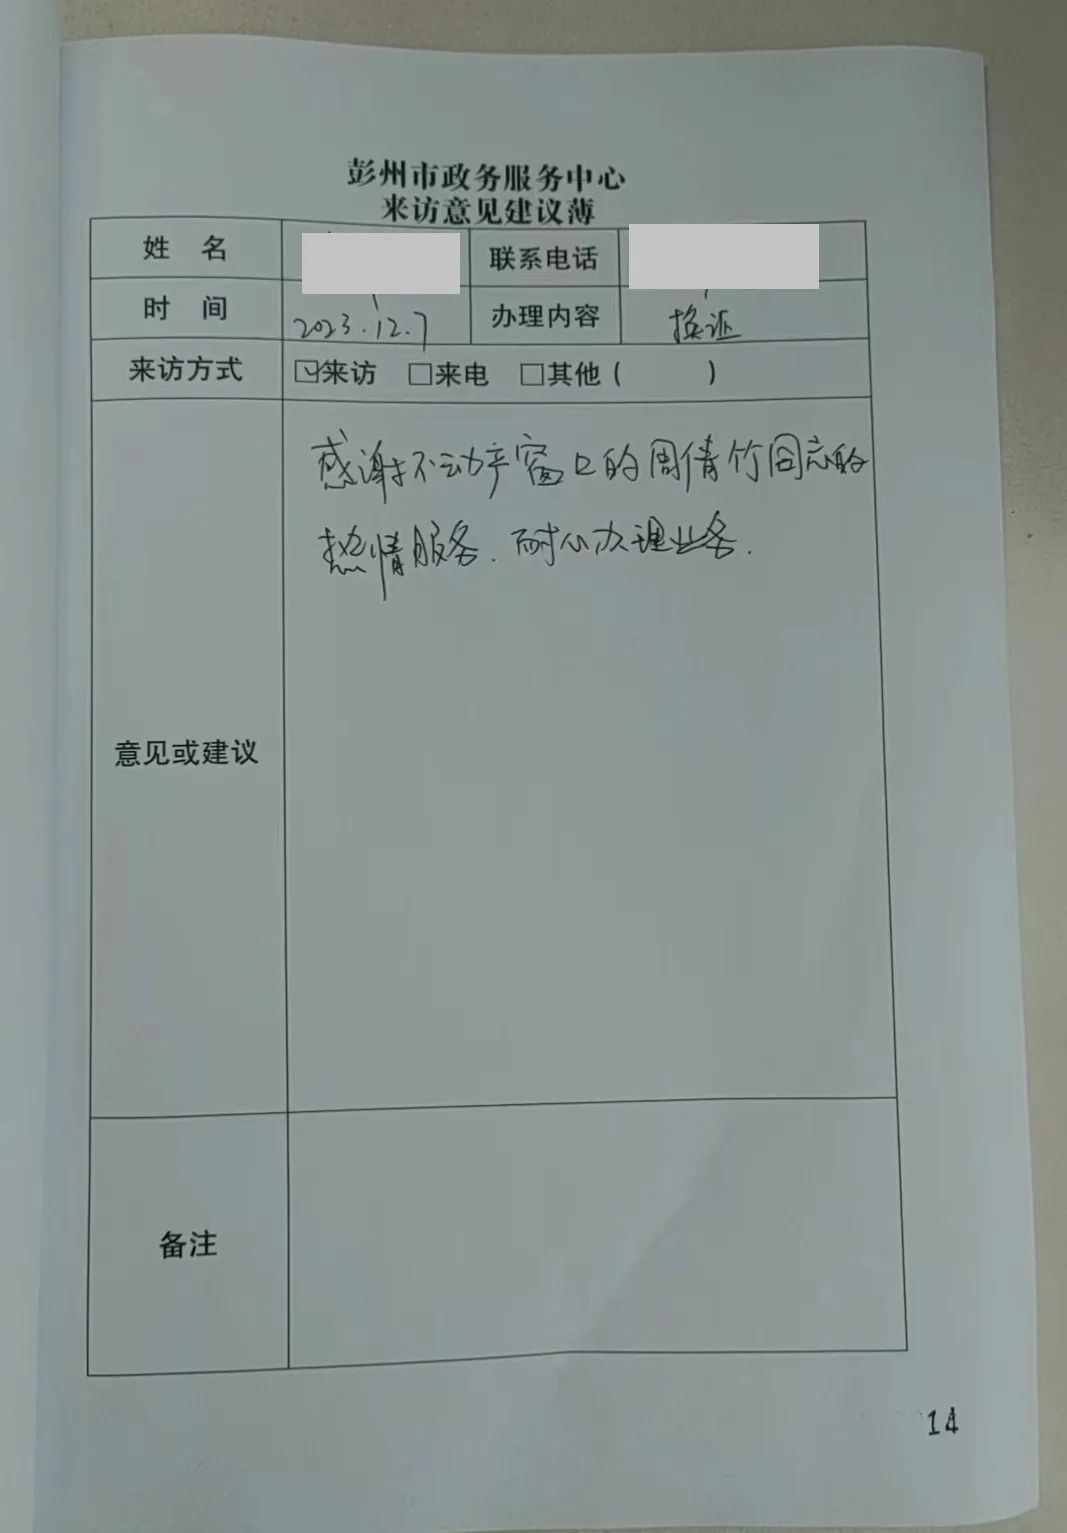 彭州市政务服务中心
来访意见建议薄
姓 名 联系电话
时 间 2023.12.7 办理内容 换证
来访方式 ☑来访 □来电 □其他( )
感谢不动产窗口的周倩竹同志的
热情服务.耐心办理业务.
意见或建议
备注
14